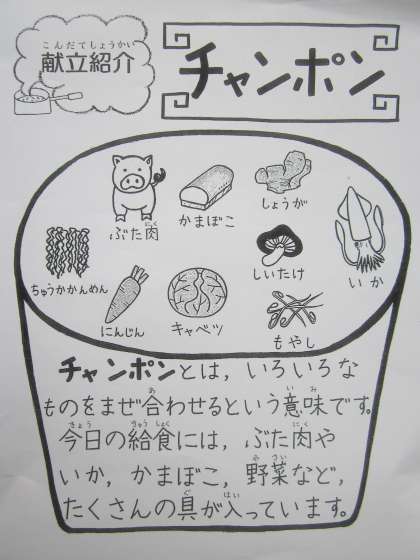 こんだてしょうかい
献立紹介
チャンポン
ぶた肉
にく
かまぼこ
しょうが
いか
ちゅうかかんめん
にんじん
キャベツ
しいたけ
もやし
チャンポンとは，いろいろな
ものをまぜ合わせるという意味です。
あ
いみ
今日の給食には，ぶた肉や
きょう
きゅうしょく
にく
いか，かまぼこ，野菜など，
やさい
たくさんの具が入っています。
ぐ
はい